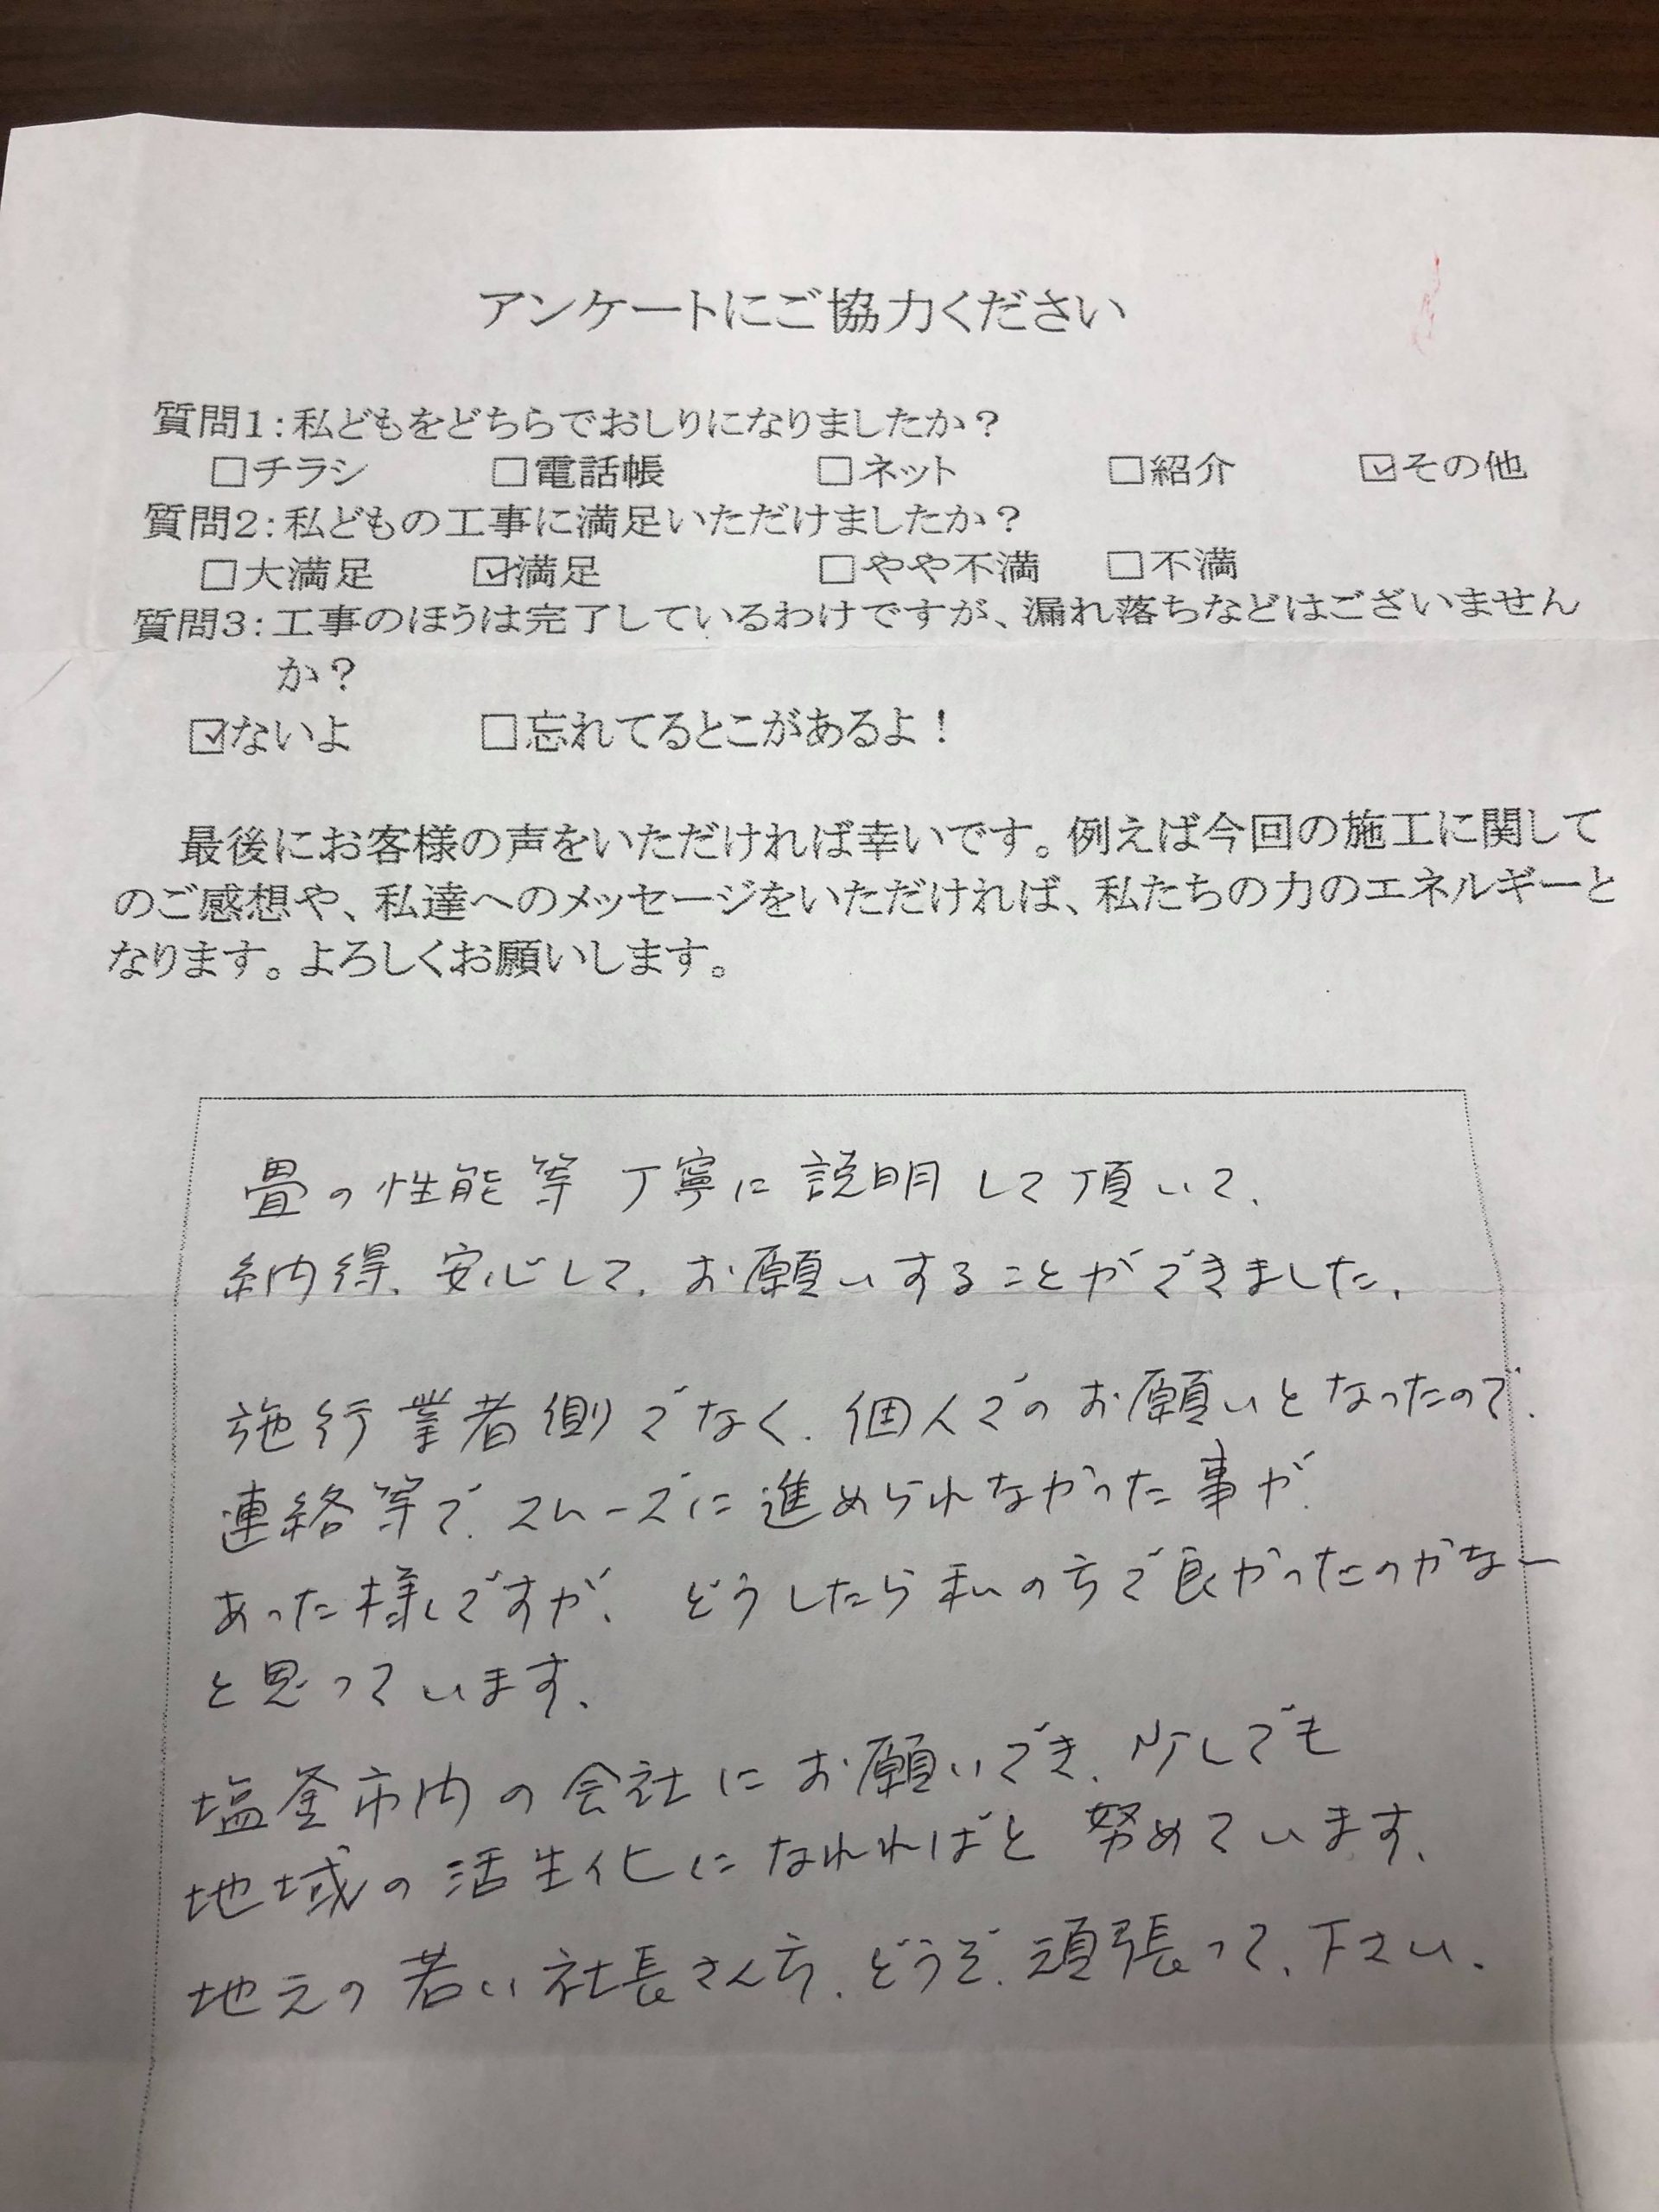 アンケートにご協力ください
質問1:私どもをどちらでおしりになりましたか?
□チラシ □電話帳 □ネット □紹介 ☑その他
質問2:私どもの工事に満足いただけましたか?
□大満足 ☑満足 □やや不満 □不満
質問3:工事のほうは完了しているわけですが、漏れ落ちなどはございません
か?
☑ないよ □忘れてるとこがあるよ!
最後にお客様の声をいただければ幸いです。例えば今回の施工に関して
のご感想や、私達へのメッセージをいただければ、私たちの力のエネルギーと
なります。よろしくお願いします。
畳の性能等 丁寧に説明して頂いて、
納得、安心して、お願いすることができました。
施行業者側でなく、個人でのお願いとなったので、
連絡等で、スムーズに進められなかった事が、
あった様ですが、どうしたら私の方で良かったのかなー
と思っています。
塩釜市内の会社にお願いでき、少しでも
地域の活生化になれればと努めています。
地元の若い社長さん方、どうぞ、頑張って、下さい。